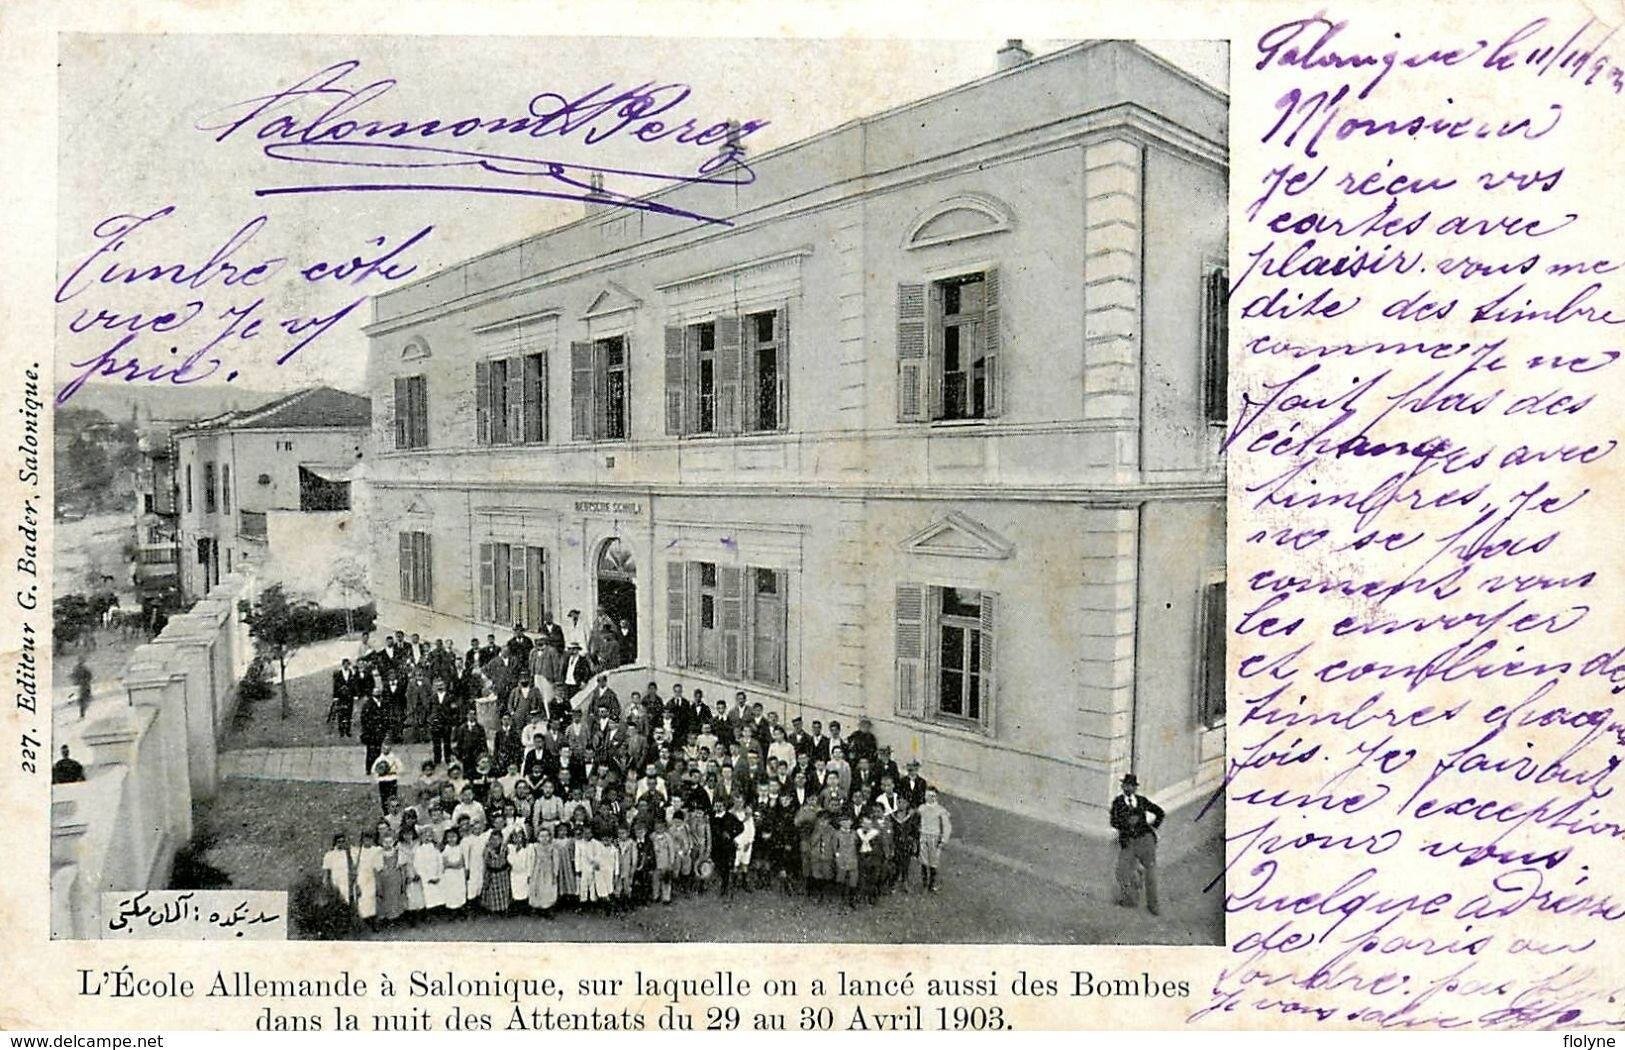 Salomon H Perez
Timbre côte
vue Je v/
prie.
227. Editeur G. Bader, Salonique.
F R
DEUTSCHE SCHULE
سلانیکده : آلمان مکتبی
L'École Allemande à Salonique, sur laquelle on a lancé aussi des Bombes
dans la nuit des Attentats du 29 au 30 Avril 1903.
Salonique le 11/
Monsieur
Je réçu vos
cartes avec
plaisir. vous me
dite des timbre
comme Je ne
fait pas des
échanges avec
timbres, Je
ne se pas
coment vous
les envoyer
et conbien des
timbres chaque
fois. Je fairait
une exception
pour vous.
Quelque adrésse
de paris ou
Londre.
Je vous salue
delcampe.net
flolyne